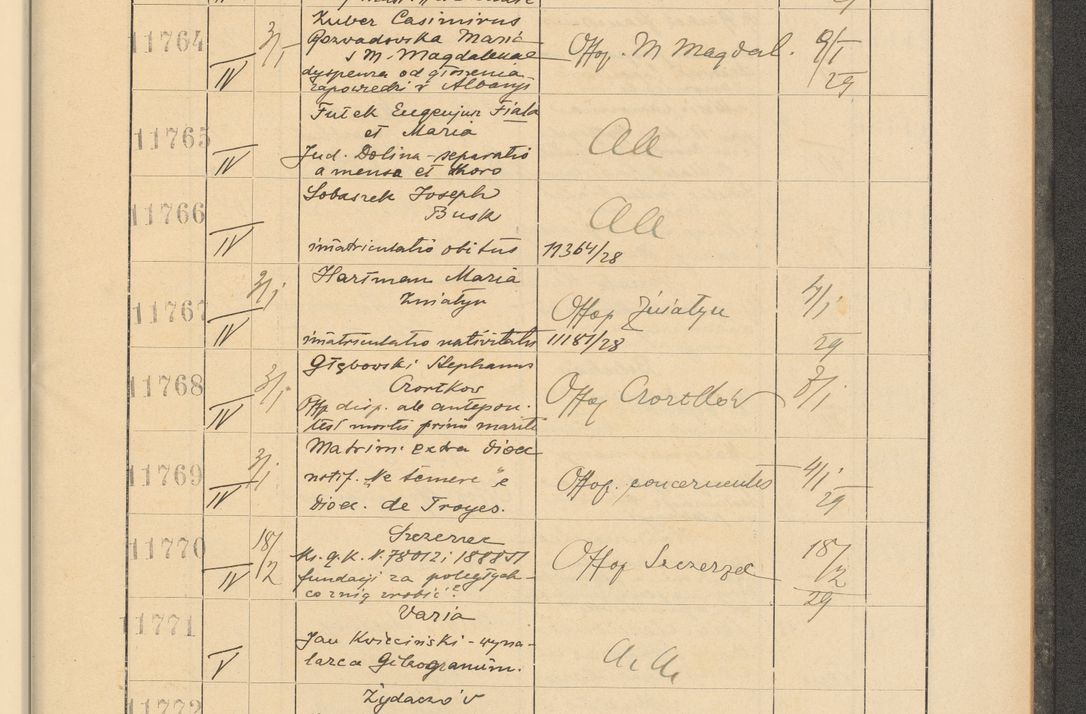 11764
IV
3/I
Zuber Casimirus
Rozwadowska Maria
s M. Magdalenae
dyspenza od głoszenia
zapowiedzi i Albanij
Offop. M Magdal.
9/I
29
11765
IV
Futek Eugenjusz Fiala
et Maria
Jud. Dolina - separatio
a mensa et thoro
AA
11766
IV
Lobaszek Joseph
Busk
imatriculatio obitus
11364/28
AA
11767
IV
2/I
Hartman Maria
Zniatyn
imatriculatio nativitatis
11187/28
Offop Zniatyn
4/I
29
11768
IV
3/I
Głębowski Stephanus
Czortkow
Offop Czortków
8/I
11769
IV
3/I
Matrim. extra dioec
notif. "Ne temere" e
Dioec. de Troyes.
Offop. concernentes
4/I
29
11770
IV
18/2
Szczerzec
fundacji za poległych -
co z nią zrobić?
Offop Szczerzec
18/2
29
11771
V
Varia
Jan Kwieciński - wyna-
lazca
A.A.
11772
Żydaczów